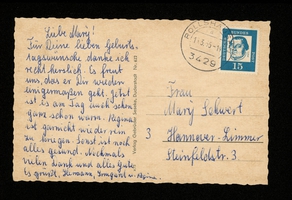 Liebe Mary!
Für Deine lieben Geburts-
tagswünsche danke ich
recht herzlich. Es freut
uns, das es Dir wieder
einigermaßen geht. Jetzt
ist es am Tag auch schon
ganz schön warm. Regina
ist garnicht wieder rein
zu kriegen. Sonst ist noch
alles gesund. Nochmals
vielen Dank und alles Gute
Es grüßt, Hermann, Irmgard u. Regina.
3429
15
Frau
Mary Schwert
3 Hannover-Limmer
Steinfeldstr. 3